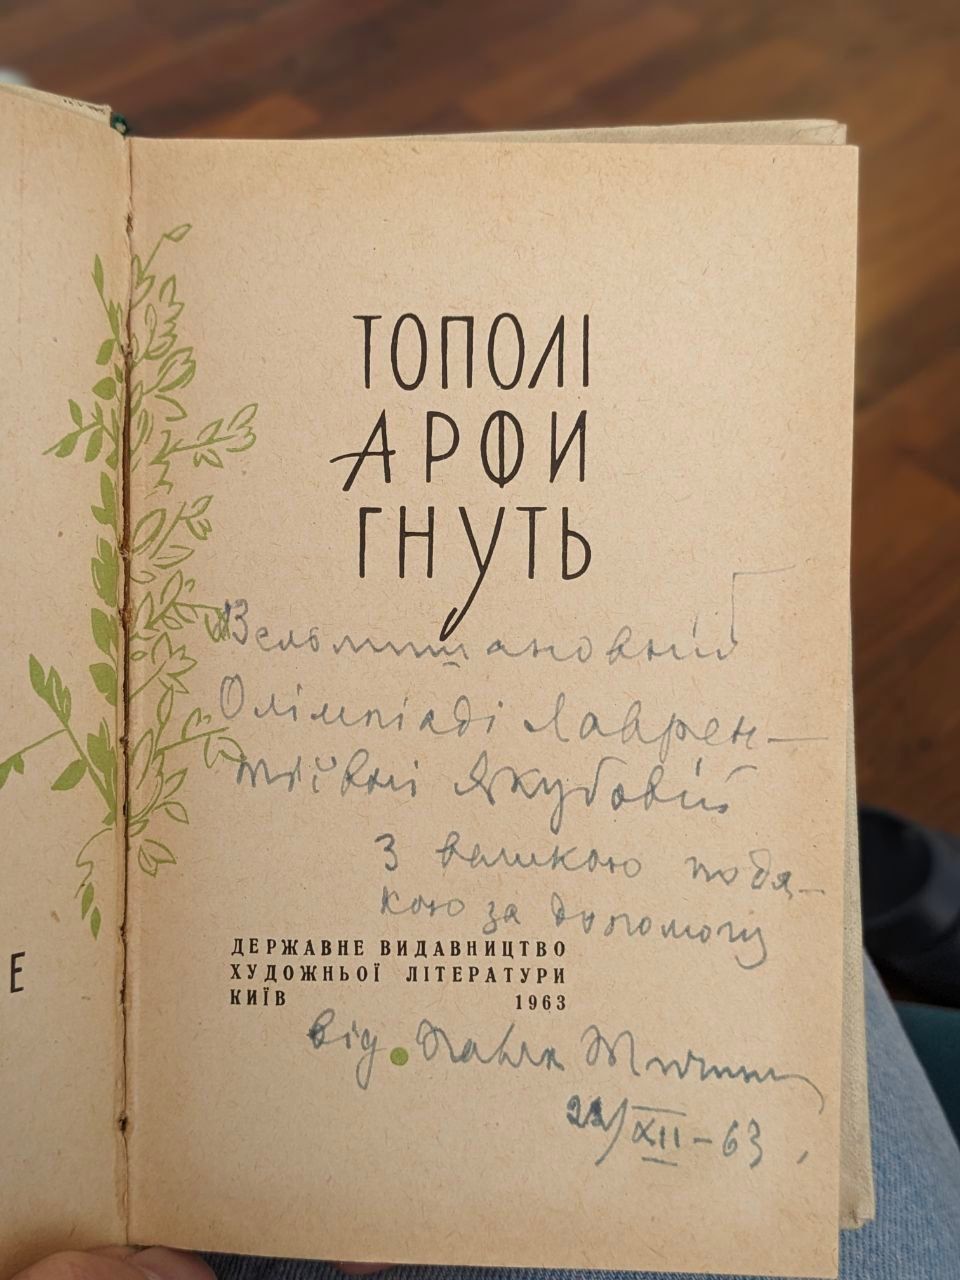 ТОПОЛІ
АРФИ
ГНУТЬ
Вельмишановній
Олімпіаді Лаврен-
тіївні Якубовій
З великою подя-
кою за допомогу
ДЕРЖАВНЕ ВИДАВНИЦТВО
ХУДОЖНЬОЇ ЛІТЕРАТУРИ
КИЇВ 1963
Е
від Павла Тичини
/XII – 63